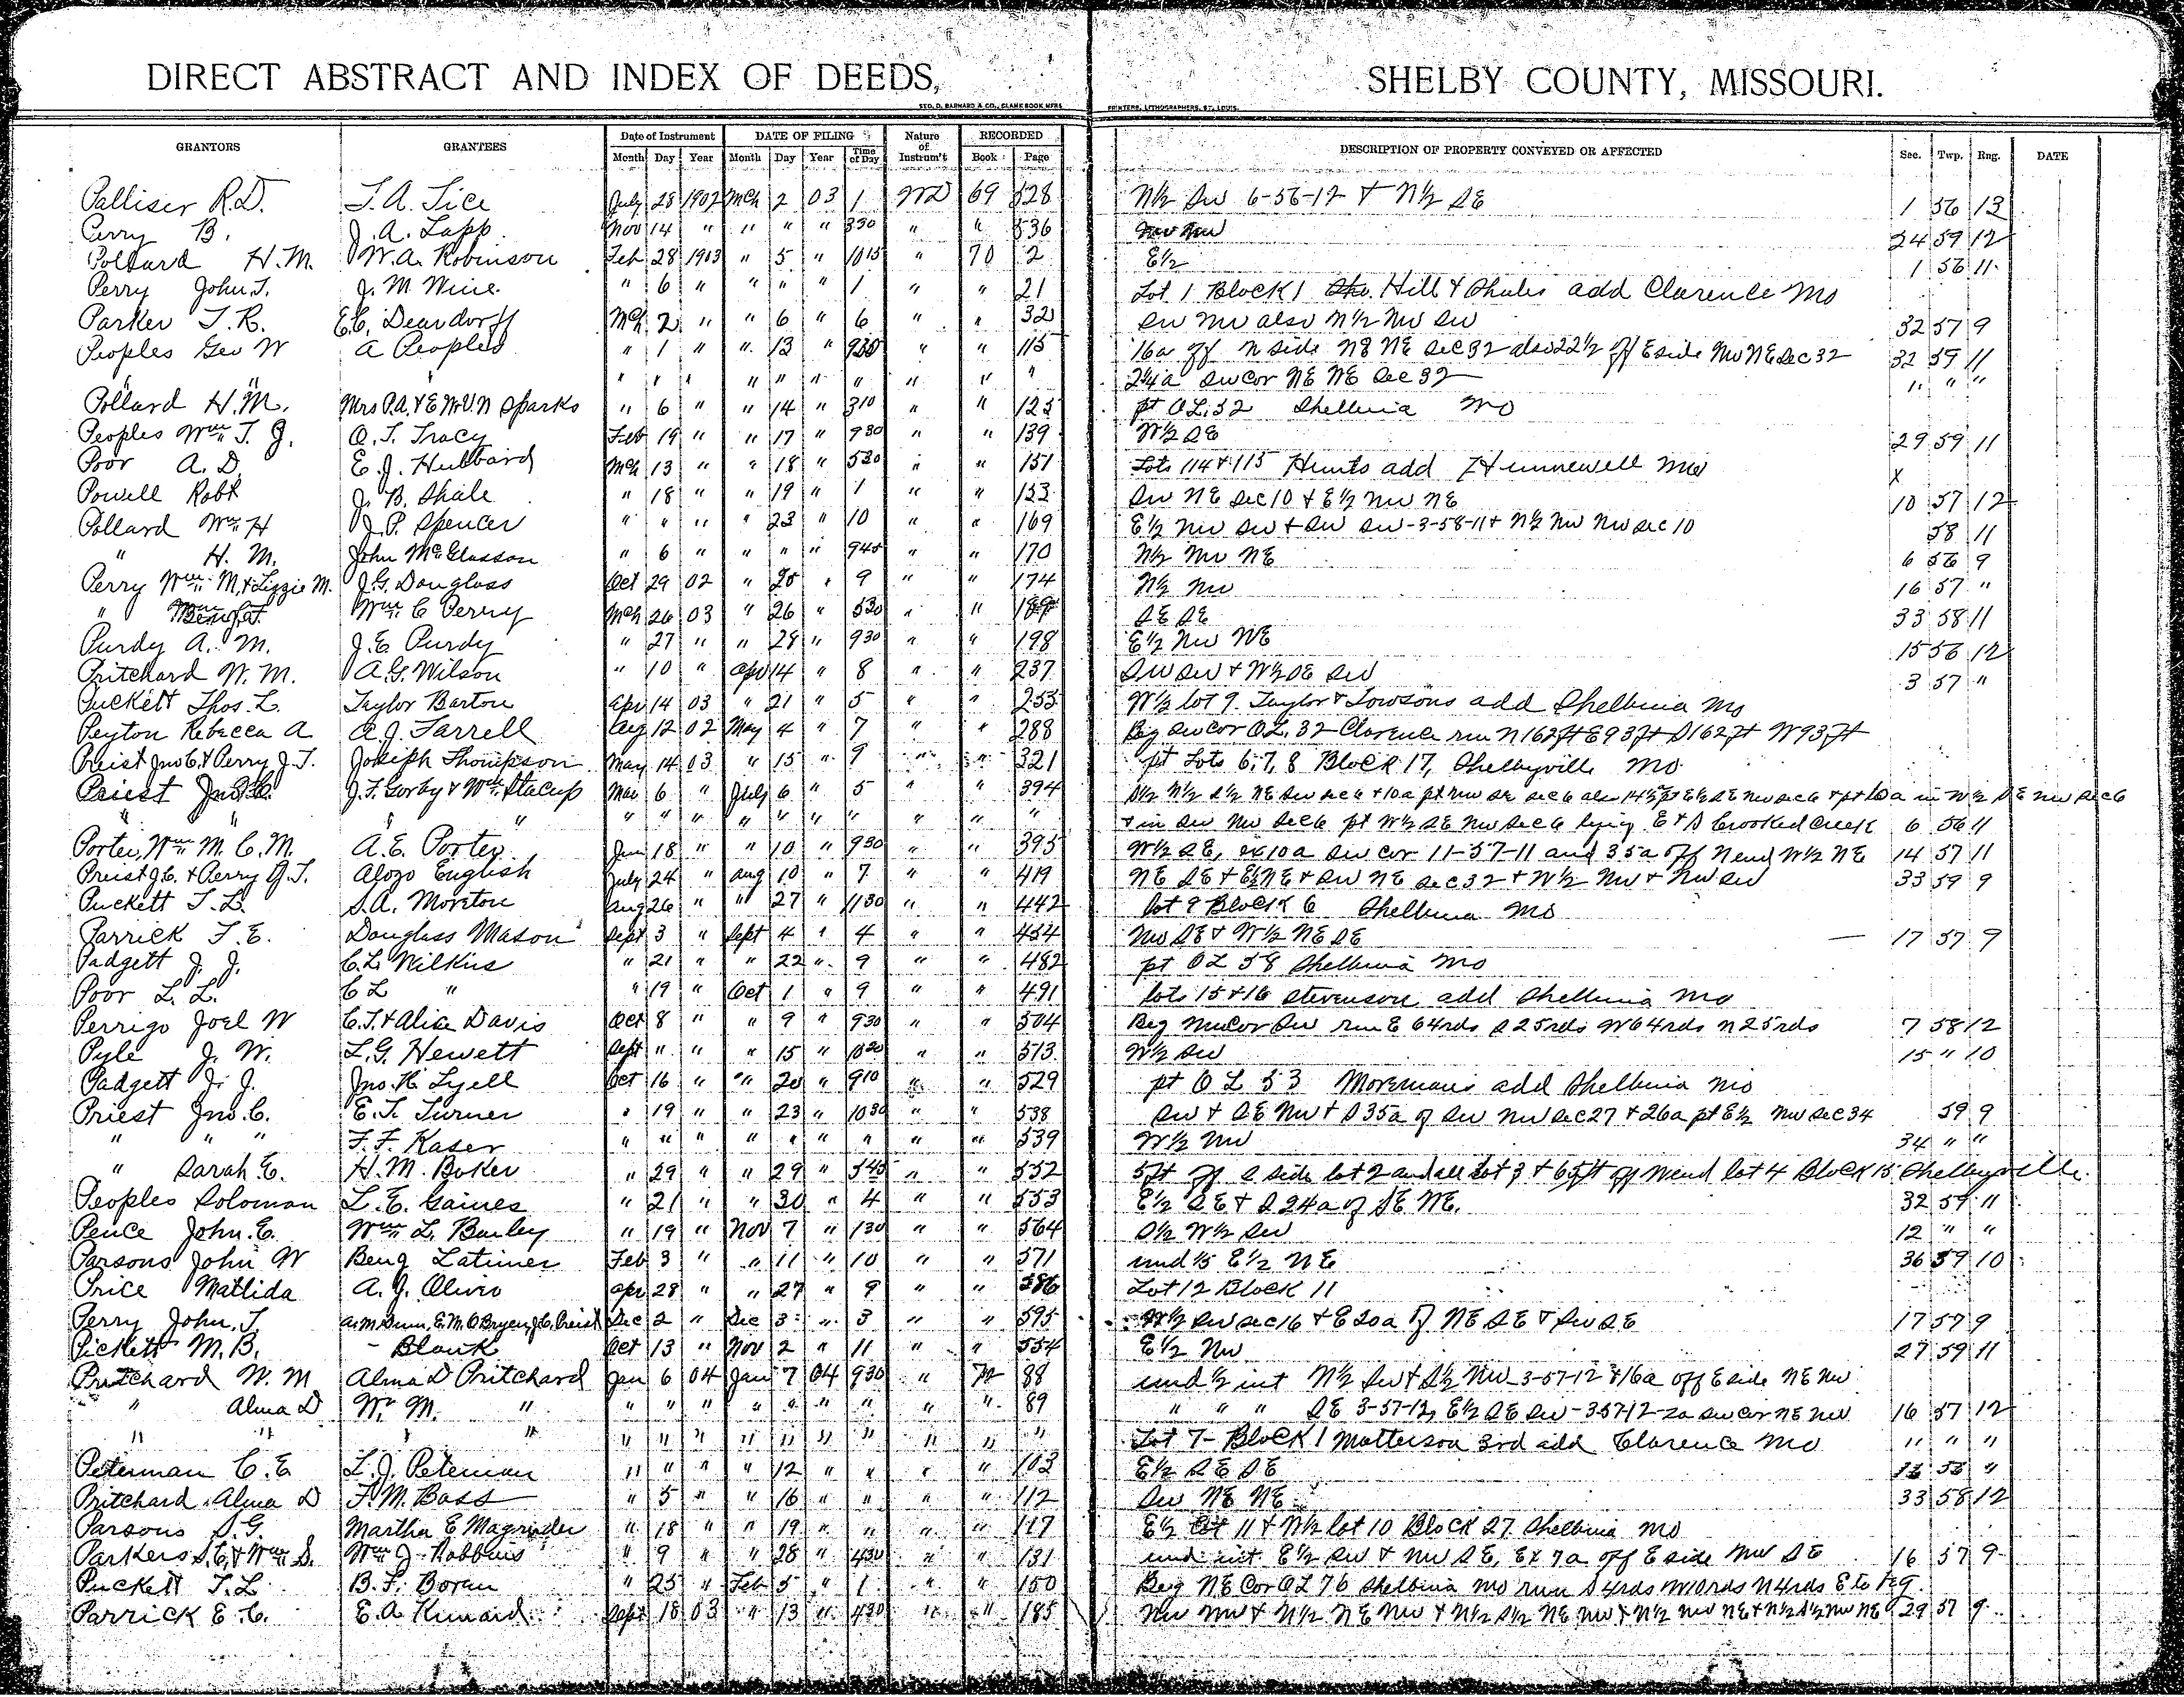 DIRECT ABSTRACT AND INDEX OF DEEDS, SHELBY COUNTY, MISSOURI.
GEO. D. BARNARD & CO., BLANK BOOK MFRS. PRINTERS, LITHOGRAPHERS, ST. LOUIS.
GRANTORS GRANTEES Date of Instrument DATE OF FILING Nature of Instrum't RECORDED DESCRIPTION OF PROPERTY CONVEYED OR AFFECTED Sec. Twp. Rng. DATE
Month Day Year Month Day Year Time of Day Book Page
Palliser R.D. T. A. Tice July 28 1902 Mch 2 03 1 WD 69 528 N½ SW 6-56-12 & N½ SE 1 56 13
Perry B. J. A. Lapp Nov 14 " " " " 330 " " 536 NW NW 24 59 12
Pollard H.M. W.A. Robinson Feb 28 1903 " 5 " 1015 " 70 2 E½ 1 56 11
Perry John T. J. M. Wine " 6 " " " " 1 " " 21 Lot 1 Block 1 Hill & Shales add Clarence Mo
Parker T. R. E.C. Deardorff Mch 2 " " 6 " 6 " " 32 SW NW also N½ NW SW 32 57 9
Peoples Geo W A Peoples " 1 " " 13 " 930 " " 115 16a off N side NE NE Sec 32 also 22½ off E side NW NE Sec 32 32 59 11
" " " " " " " " " " " " 2¼a SW cor NE NE Sec 32 " " "
Pollard H.M. Mrs P.A. & E.W.V.N Sparks " 6 " " 14 " 310 " " 125 pt OL. 32 Shelbina Mo
Peoples Wm T. J. O. T. Tracy Feb 19 " " 17 " 930 " " 139 W½ SE 29 59 11
Poor A. D. E. J. Hubbard Mch 13 " " 18 " 530 " " 151 Lots 114 & 115 Hunts add Hunnewell Mo X
Powell Robt J. B. Shale " 18 " " 19 " 1 " " 153 SW NE Sec 10 & E½ NW NE 10 57 12
Pollard Wm H J. P. Spencer " " " " 23 " 10 " " 169 E½ NW SW & SW SW-3-58-11 & N½ NW NW Sec 10 58 11
" H. M. John McGlasson " 6 " " " " 945 " " 170 N½ NW NE 6 56 9
Perry Wm M. & Lizzie M. J.G. Douglass Oct 29 02 " 25 " 9 " " 174 N½ NW 16 57 "
" Benj. F. Wm C Perry Mch 26 03 " 26 " 530 " " 189 SE SE 33 58 11
Purdy A. M. J. E. Purdy " 27 " " 28 " 930 " " 198 E½ NW NE 15 56 12
Pritchard W. M. A.G. Wilson " 10 " Apr 14 " 8 " " 237 SW SW & W½ SE SW 3 57 "
Puckett Thos. L. Taylor Barton Apr 14 03 " 21 " 5 " " 253 W½ lot 9. Taylor & Towsons add Shelbina Mo
Peyton Rebecca A A. J. Farrell Aug 12 02 May 4 " 7 " " 288 Beg SW cor OL. 32 Clarence run N 162ft E 93ft S 162ft W 93ft
Preist Jno C. & Perry J. T. Joseph Thompson May 14 03 " 15 " 9 " " 321 pt Lots 6, 7, 8 Block 17, Shelbyville Mo
Priest Jno C. J. F. Gorby & Wm Stacup Mar 6 " July 6 " 5 " " 394 S½ N½ S½ NE SW Sec 6 & 10a pt NW SE Sec 6 also 14½ pt E½ SE NW Sec 6 & pt 10a in W½ SE NW Sec 6
" " " " " " " " " " " " " & in SW NW Sec 6 pt W½ SE NW Sec 6 lying E & S Crooked Creek 6 56 11
Porter, Wm M. C. M. A. E. Porter Jun 18 " " 10 " 930 " " 395 W½ SE, ex 10a SW cor 11-57-11 and 35a off N end W½ NE 14 57 11
Preist J.C. & Perry J. T. Alozo English July 24 " Aug 10 " 7 " " 419 NE SE & E½ NE & SW NE Sec 32 & W½ NW & NW SW 33 59 9
Puckett T. L. S. A. Moreton Aug 26 " " 27 " 1130 " " 442 lot 9 Block 6 Shelbina Mo
Parrick F. E. Douglass Mason Sept 3 " Sept 4 " 4 " " 454 NW SE & W½ NE SE 17 57 9
Padgett J. J. C. L. Wilkins " 21 " " 22 " 9 " " 482 pt OL 58 Shelbina Mo
Poor L. L. C L " " 19 " Oct 1 " 9 " " 491 lots 15 & 16 Stevenson add Shelbina Mo
Perrigo Joel W C. T. & Alice Davis Oct 8 " " 9 " 930 " " 504 Beg NW cor SW run E 64rds S 25rds W 64rds N 25rds 7 58 12
Pyle J. W. L. G. Hewett Sept " " " 15 " 1030 " " 513 W½ SW 15 " 10
Padgett J. J. Jno. H. Lyell Oct 16 " " 20 " 910 " " 529 pt OL 53 Moremans add Shelbina Mo
Priest Jno. C. E. T. Turner " 19 " " 23 " 1030 " " 538 SW & SE NW & S 35a of SW NW Sec 27 & 26a pt E½ NW Sec 34 59 9
" " " F. F. Kaser " " " " " " " " " 539 W½ NW 34 " "
" Sarah E. H. M. Boker " 29 " " 29 " 345 " " 552 5ft off S side lot 2 and all lot 3 & 65ft off N end lot 4 Block 15 Shelbyville
Peoples Soloman L. E. Gaines " 21 " " 30 " 4 " " 553 E½ SE & S 24a of SE NE. 32 59 11
Pence John. E. Wm L. Bauley " 19 " Nov 7 " 130 " " 564 S½ W½ SW 12 " "
Parsons John W Benj Latimer Feb 3 " " 11 " 10 " " 571 und ⅕ E½ NE 36 59 10
Price Matlida A. J. Olivio Apr 28 " " 27 " 9 " " 586 Lot 12 Block 11
Perry John. T. A.M. Gunn, E.M. O Bryen, J.C. Preist Dec 2 " Dec 3 " 3 " " 595 W½ SW Sec 16 & E 20a of NE SE & SW SE 17 57 9
Pickett M. B. - Blank Oct 13 " Nov 2 " 11 " " 554 E½ NW 27 59 11
Pritchard W. M Alma D Pritchard Jan 6 04 Jan 7 04 930 " 72 88 und ½ int N½ SW & S½ NW 3-57-12 & 16a off E side NE NW
" Alma D W. M. " " " " " " " " " " 89 " " " SE 3-57-12, E½ SE SW-3-57-12-2a SW cor NE NW 16 57 12
" " " " " " " " " " " " " " Lot 7-Block 1 Matterson 3rd add Clarence Mo " " "
Peterman C. E L. J. Peteman " " " " 12 " " " " 103 E½ SE SE 53 "
Pritchard Alma D F. M. Bass " 5 " " 16 " " " " 112 SW NE NE 33 58 12
Parsons S. G. Martha E Magrinder " 18 " " 19 " " " " 117 E½ lot 11 & W½ lot 10 Block 27 Shelbina Mo
Parkers S.C. & Wm S. Wm J. Robbins " 9 " " 28 " 430 " " 131 und int E½ SW & NW SE, Ex 7a off E side NW SE 16 57 9
Puckett T. L. B. F. Boren " 25 " Feb 5 " 1 " " 150 Beg NE Cor OL 76 Shelbina Mo run S 4rds W 10rds N 4rds E to Beg.
Parrick E. C. E. A. Kinard Sept 18 03 " 13 " 430 " " 185 NW NW & N½ NE NW & N½ S½ NE NW & N½ NW NE & N½ S½ NW NE 29 57 9